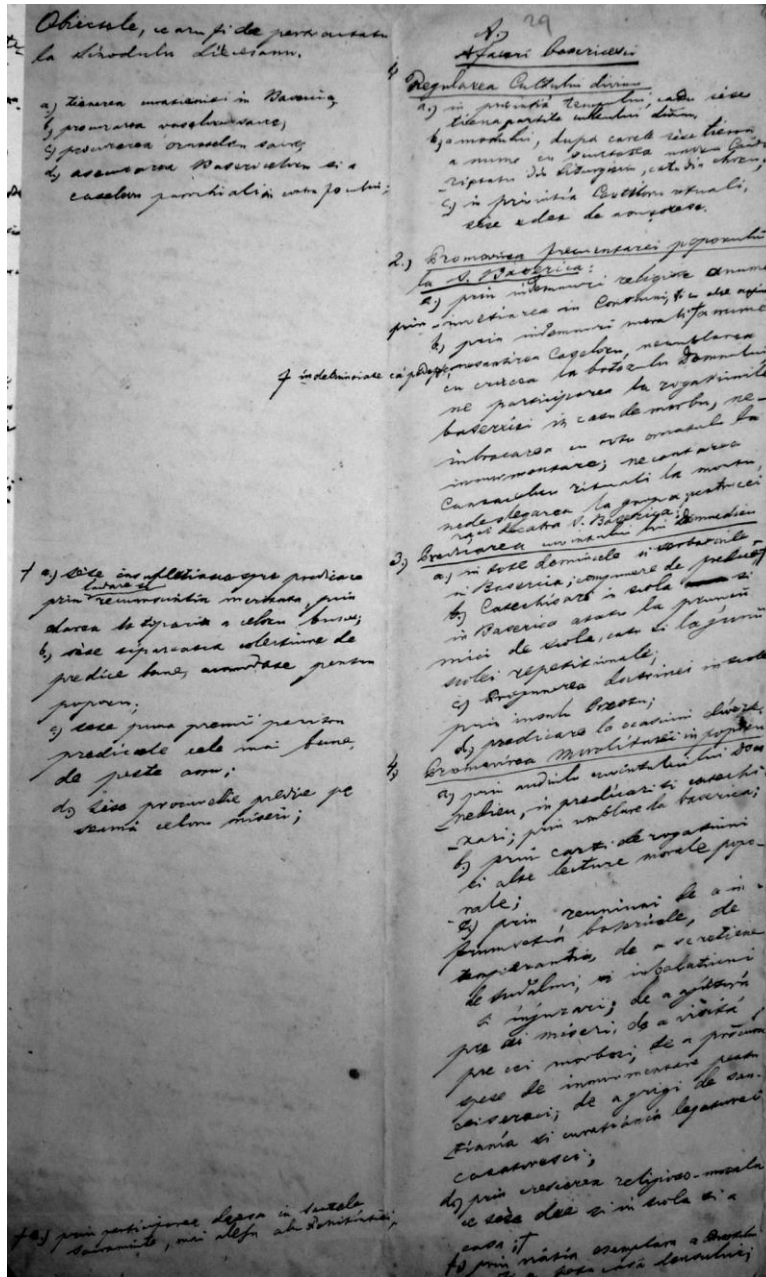 Obiectele, ce aru fi de pertractatu
la Sinodulu Diecesanu.
a.) tienerea curatieniei in Baserica,
b.) procurarea vaseloru sacre,
c.) procurarea ornateloru sacre,
d.) asecurarea Basericeloru si a
caseloru parochiali in contra focului;
† a.) sese insufletiasca spre predicare
prin laudare si
recunoscintia meritata, prin
edarea la tipariu a celoru bune;
b.) sese tiparesca colectiune de
predice bune, acomodate pentru
poporu;
c.) sese puna premii pentru
predicele cele mai bune,
de peste anu;
d.) sese procure predice pe
seama celoru miseri;
† e.) prin participarea desea in santele
sacraminte, mai alesu alu Penitintiei;
29
A.)
Afaceri basericesci
1. Regularea Cultului divinu
a.) in privintia tempului, candu sese
tiena partile cultului divinu,
b.) a modului, dupa carele sese tiena
a nume cu
din Liturgia,
c.) in privintia Cartiloru rituali,
sese edee
2.) Promovarea frecuentarei poporului
la S. Baserica:
a.) prin indemnuri religiose anume
prin invetiarea in
b.) prin indemnuri morali † a nume
† indetoriniate ca pedepse, nesantirea Caseloru, neumblarea
cu crucea la botezulu Domnului
ne participarea la rogatiunile
basericei in casu de morbu, ne-
imbracarea cu ornatulu la
inmormentare; necantarea
Cantareloru rituali la mortu,
nedeslegarea la gropa
catra S. Baserica;
3.) Predicarea cuventului lui Domnedieu
a.) in tote dominecele si serbatorile
in Baserica; compunere de predice †
b.) Catechisare in scola si
in Baserica atatu la prunci
mici de scola, catu si la junii
scolei repetitionale;
c.) Propunerea doctrinei in scola
prin insulu Preotu;
d.) predicare la ocasiuni diverse,
4.) Promovarea Moralitatei in poporu
a.) prin audirea cuventului lui Dom-
nedieu, in predicari si catechi-
zari; prin umblare la baserica;
b.) prin carti de rogatiuni
si alte lecture morale popo-
rale;
c.) prin reuniuni de a in-
frumsetiá basericele, de
temperantia, de a se retiene
de sudalmi, si
si injurari; de a ajutorá
pre cei miseri; de a visitá
pre cei morbosi; de a procurá
spese de inmormentare pentru
cei seraci; de a grigi de san-
tiania si curatiania legaturei
casatoresci;
d.) prin crescerea religioso-morala
ce sese dee si in scola si a
casa; †
f.) prin viatia esemplara a Preotului
si a tota casa densului;